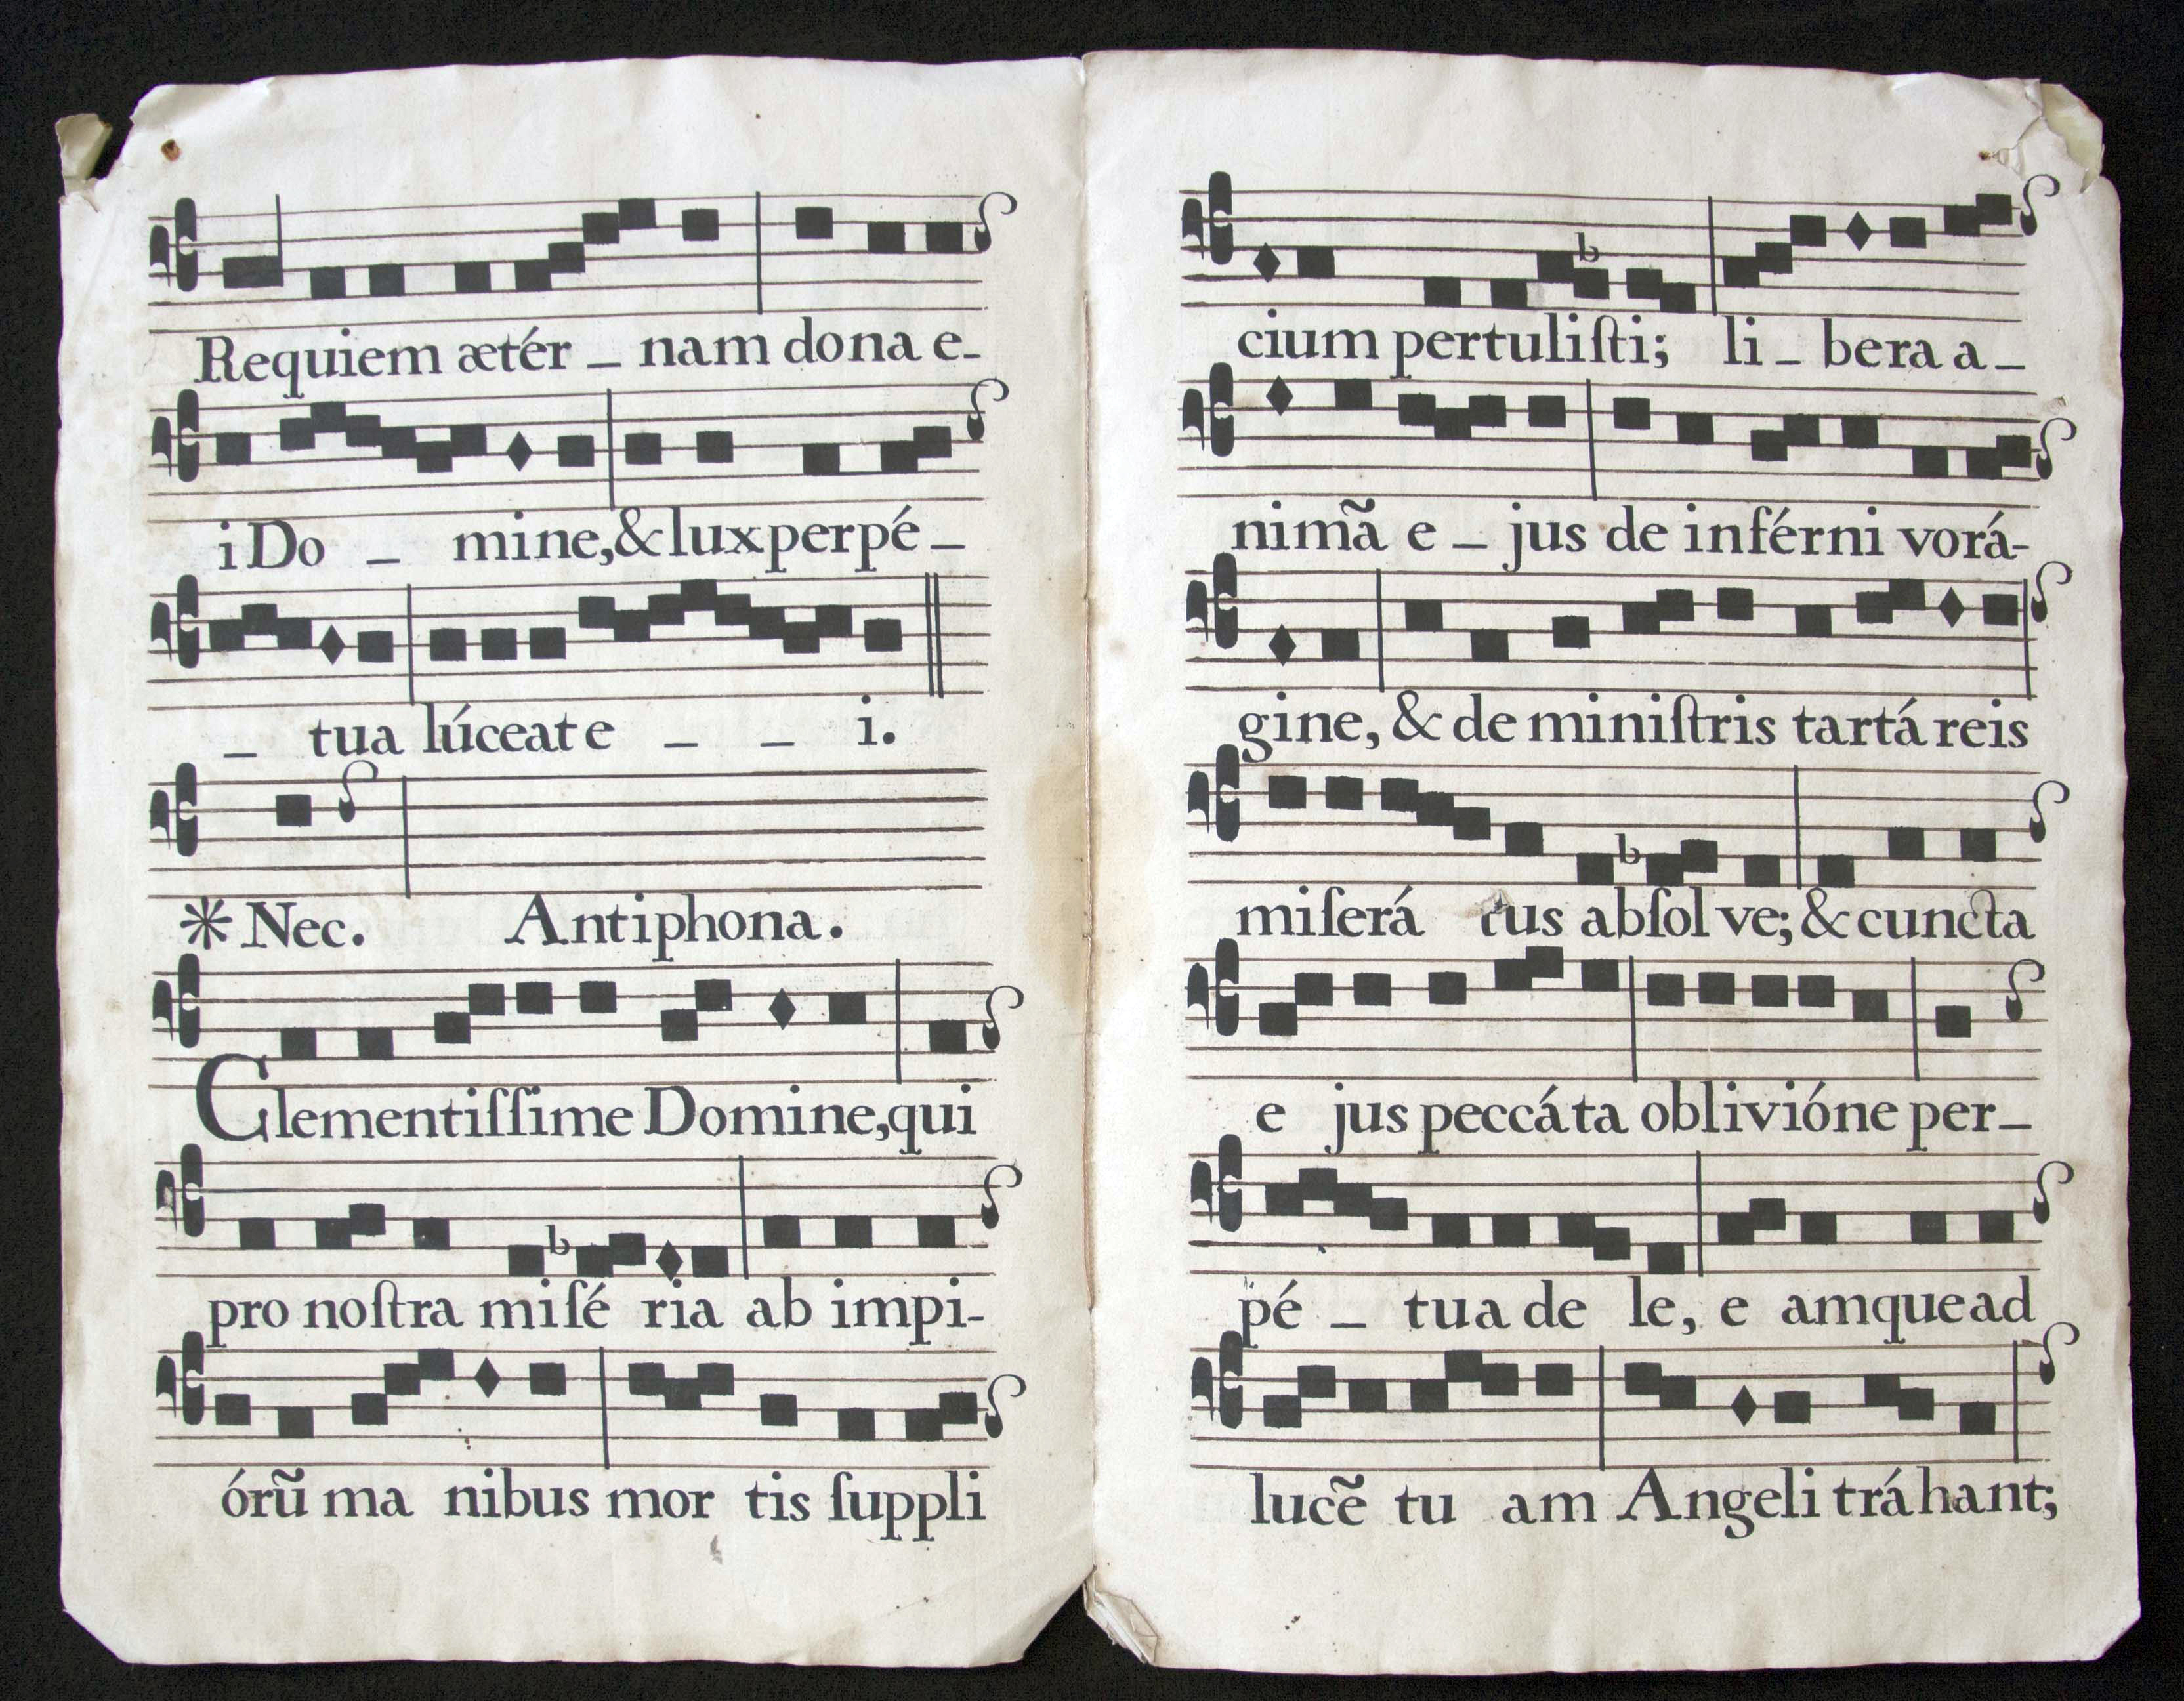 Requiem ætér _ nam dona e-
i Do _ mine, & lux perpé _
_ tua lúceat e _ _ i.
* Nec. Antiphona.
Clementiſſime Domine, qui
pro noſtra miſé ria ab impi-
órũ ma nibus mor tis ſuppli
cium pertuliſti; li _ bera a _
nimã e _ jus de inférni vorá-
gine, & de miniſtris tartá reis
miſerá tus abſol ve; & cuncta
e jus peccáta oblivióne per _
pé _ tua de le, e amque ad
lucẽ tu am Angeli tráhant;